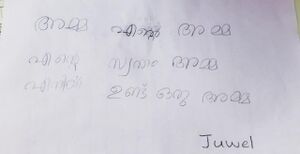 അമ്മ എന്റെ അമ്മ
എന്റെ സ്വന്തം അമ്മ
എനിക്ക് ഉണ്ട് ഒരു അമ്മ
Juwel